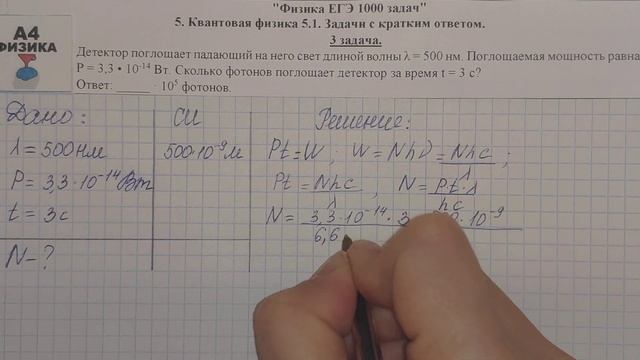 "Физика ЕГЭ 1000 задач"
5. Квантовая физика 5.1. Задачи с кратким ответом.
3 задача.
А4
ФИЗИКА
Детектор поглощает падающий на него свет длиной волны λ = 500 нм. Поглощаемая мощность равна
P = 3,3 • 10⁻¹⁴ Вт. Сколько фотонов поглощает детектор за время t = 3 с?
Ответ: ______ · 10⁵ фотонов.
Дано: СИ Решение:
λ = 500 нм 500·10⁻⁹м Pt = W ; W = Nhν = Nhc/λ ;
P = 3,3·10⁻¹⁴ Вт Pt = Nhc/λ , N = Pt·λ/hc
t = 3с N = 3,3·10⁻¹⁴·3 ·10⁻⁹
6,6
N - ?